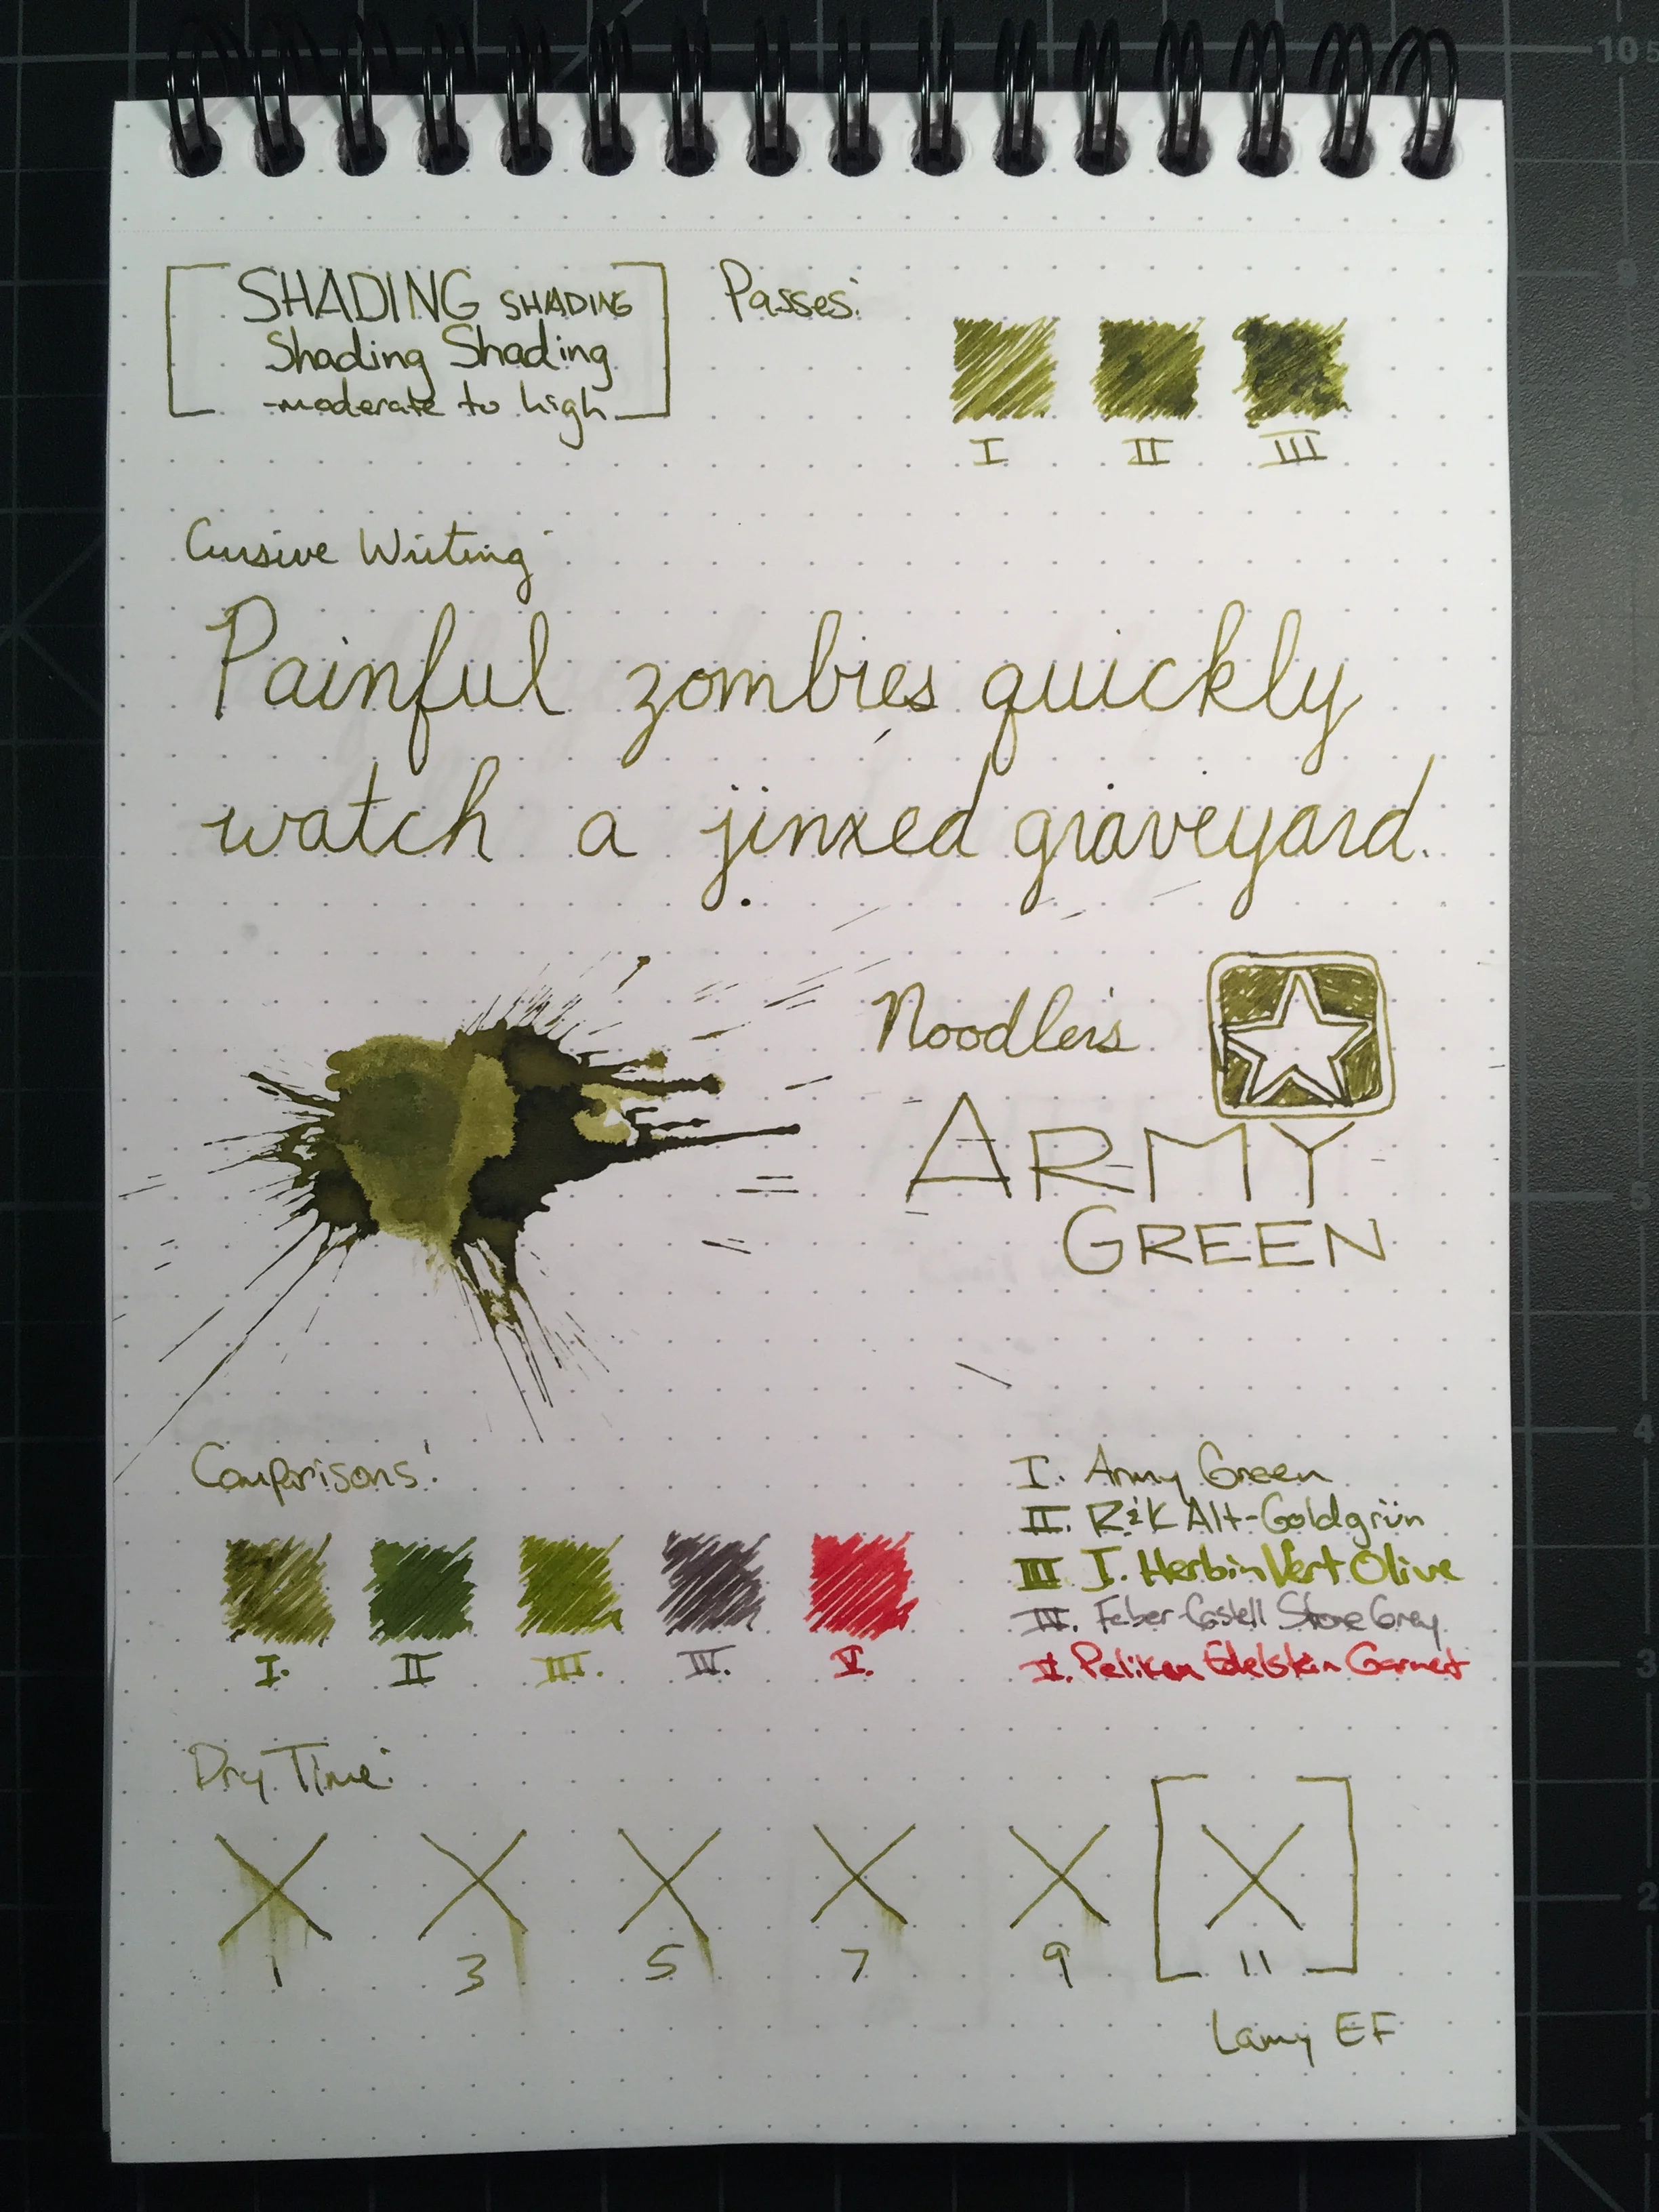 SHADING SHADING
Shading Shading
-moderate to high
Passes:
I II III
Cursive Writing:
Painful zombies quickly
watch a jinxed graveyard.
Noodler's
ARMY
GREEN
Comparisons:
I. II III. IV. V.
I. Army Green
II. R&K Alt-Goldgrün
III J. Herbin Vert Olive
IV. Faber-Castell Stone Grey
V. Pelikan Edelstein Garnet
Dry Time:
1 3 5 7 9 11
Lamy EF
10
9
5
4
3
2
1